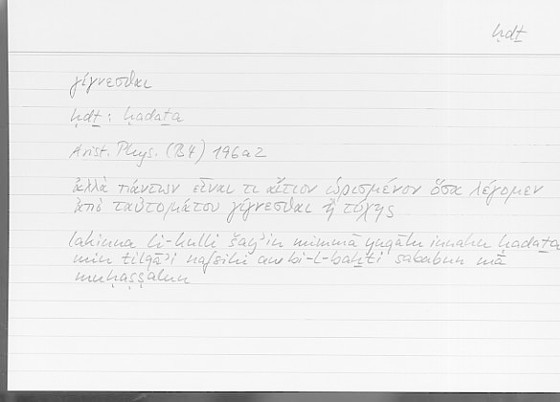 ḥdṯ
γίγνεσθαι
ḥdṯ : ḥadaṯa
Arist. Phys. (B4) 196a2
ἀλλὰ πάντων εἶναί τι αἴτιον ὡρισμένον ὅσα λέγομεν
ἀπὸ ταὐτομάτου γίγνεσθαι ἢ τύχης
lākinna li-kulli šayʾin mimmā yuqālu innahu ḥadaṯa
min tilqāʾi nafsihi aw bi-l-baḫti sababun mā
muḥaṣṣalun